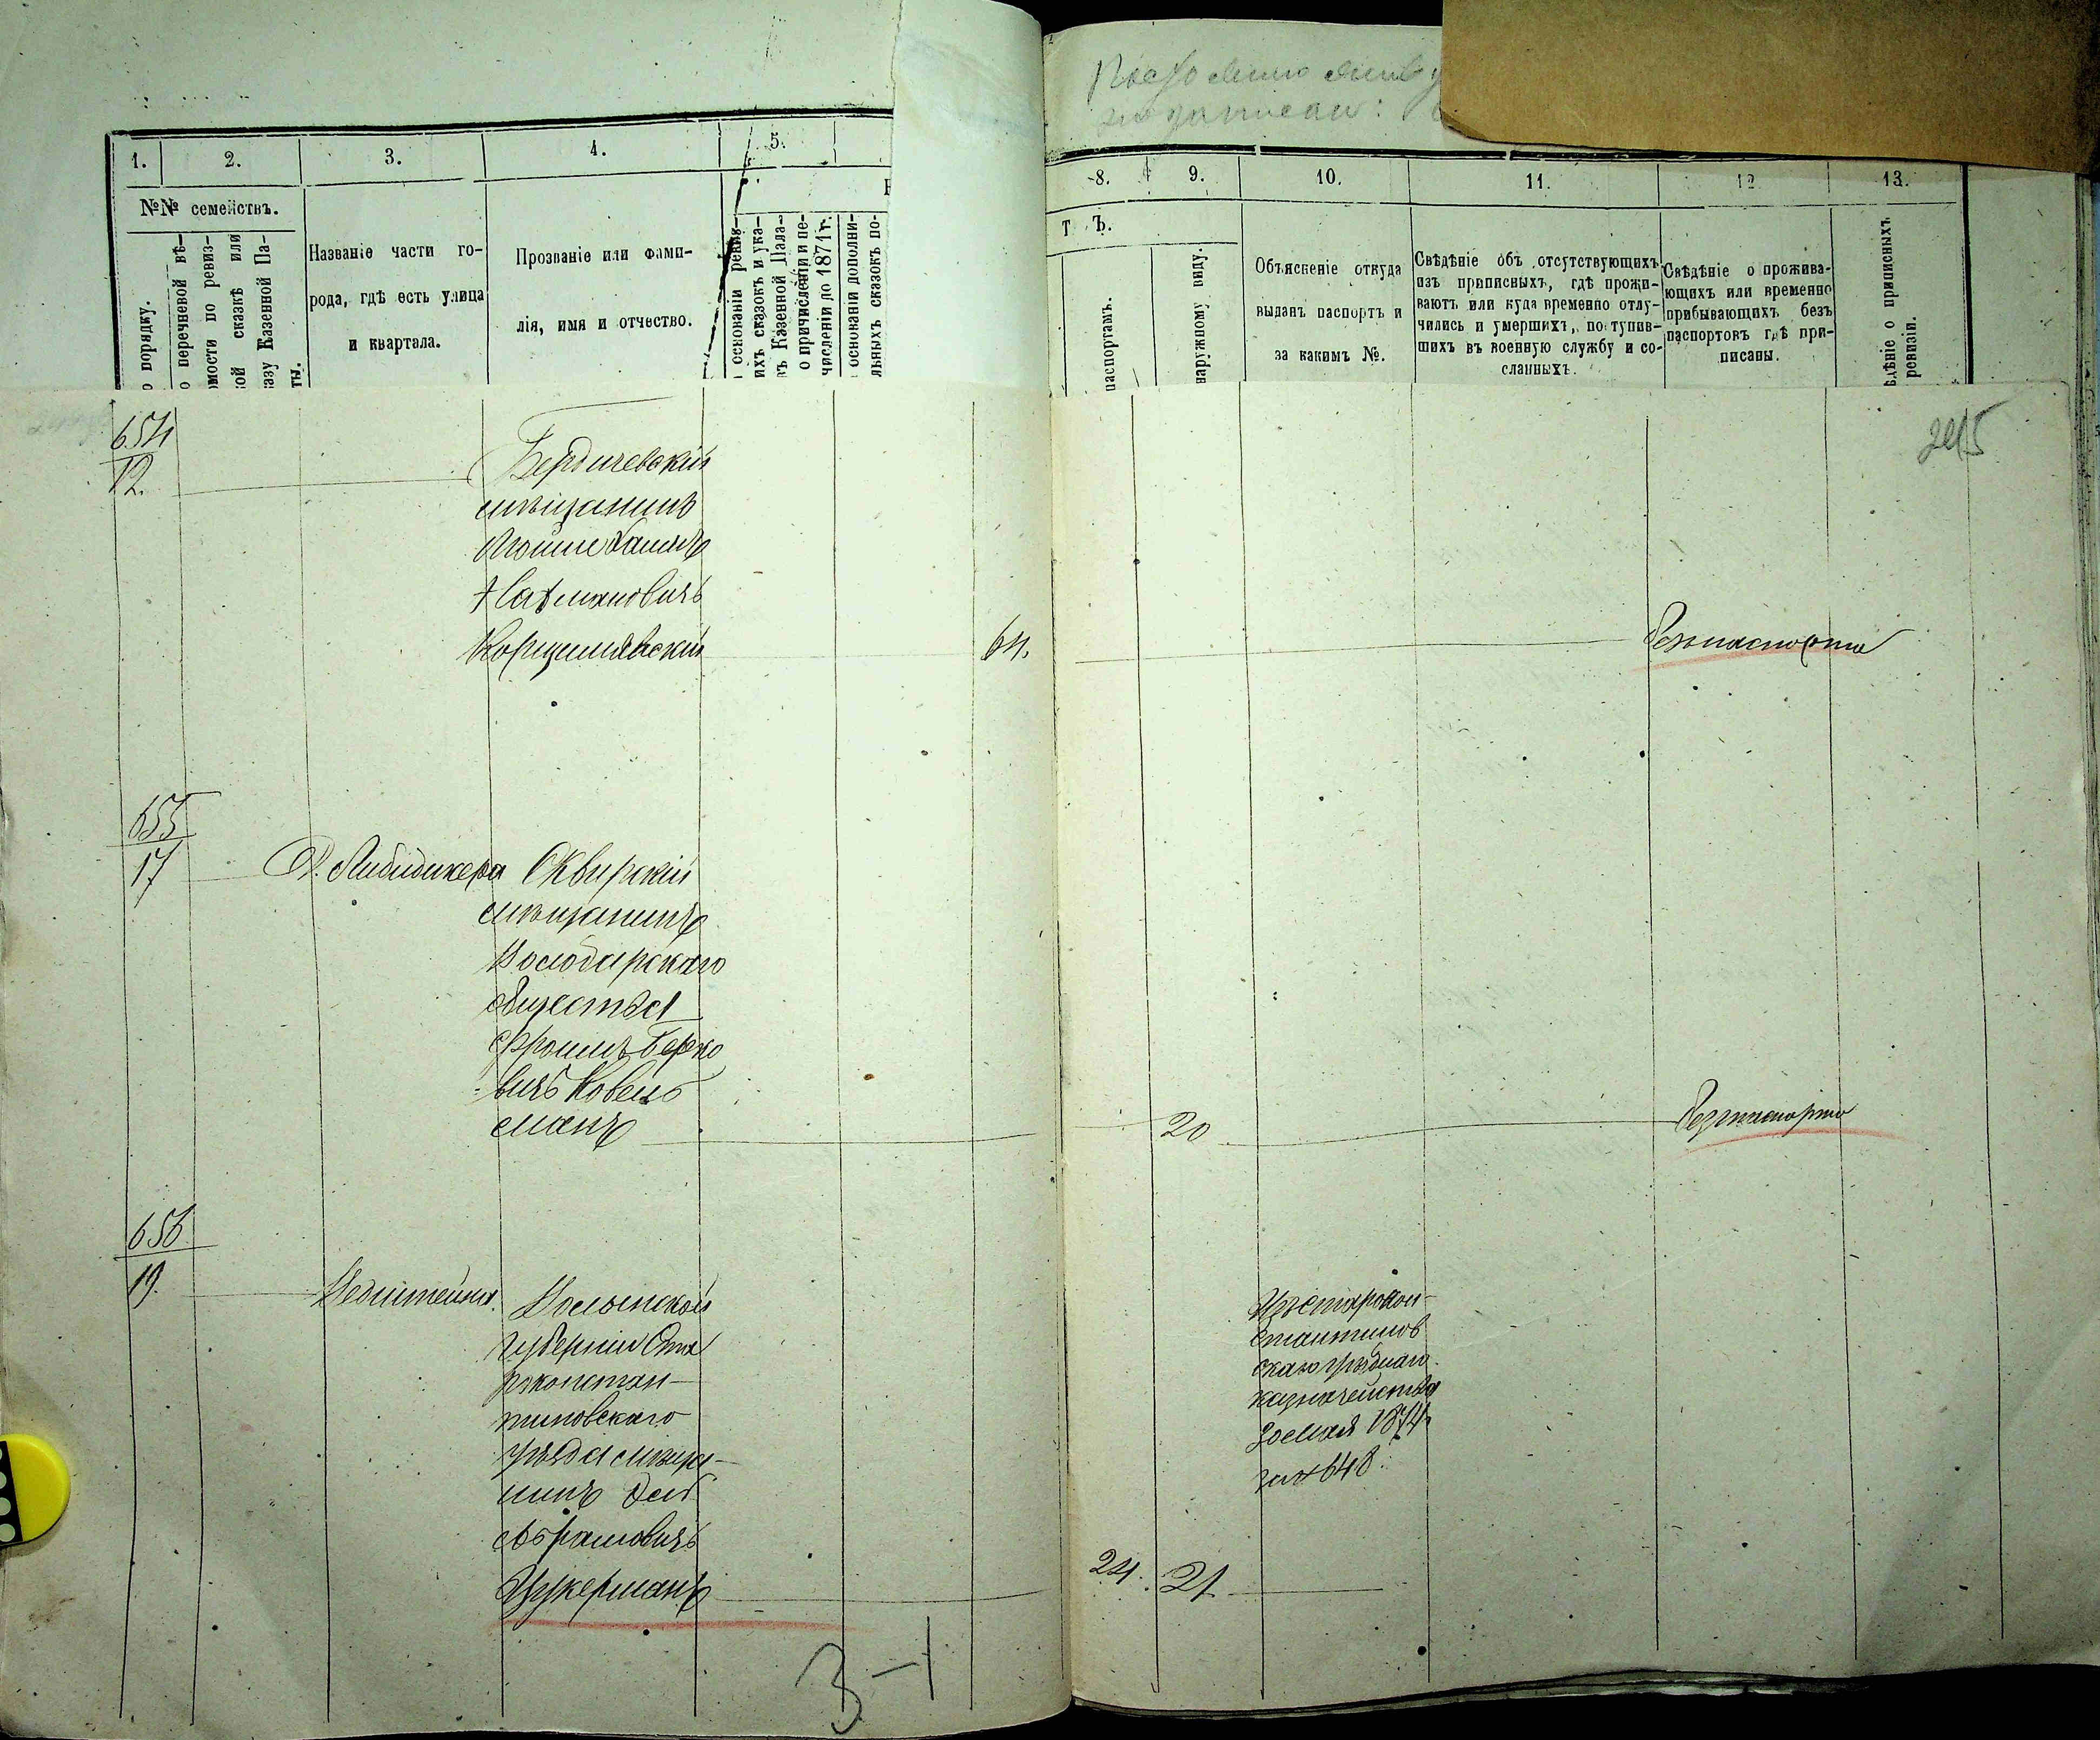 1.
2.
3.
4.
5.
№№ семействъ.
о порядку.
о перечневой вѣ-
омости по ревиз-
кой сказкѣ или
казу Казенной Па-
ты.
Названіе части го-
рода, гдѣ есть улица
и квартала.
Прозваніе или фами-
лія, имя и отчество.
основаніи ревиз-
ихъ сказокъ и ука-
въ Казенной Пала-
о причисленіи и пе-
численіи до 1871 г.
основаніи дополни-
льныхъ сказокъ по-
8.
9.
10.
11.
12
13.
Т Ъ.
паспортамъ.
наружному виду.
Объясненіе откуда
выданъ паспортъ и
за какимъ №.
Свѣдѣніе объ отсутствующихъ
изъ приписныхъ, гдѣ прожи-
ваютъ или куда временно отлу-
чились и умершихъ, поступив-
шихъ въ военную службу и со-
сланныхъ.
Свѣдѣніе о прожива-
ющихъ или временно
прибывающихъ безъ
паспортовъ гдѣ при-
писаны.
ѣдѣніе о приписныхъ
ревизіи.
654
12.
Бердичевскій
мѣщанинъ
Мошко Хаимъ
Нахмановичъ
64.
безъ паспорта
655
17
Сквирскій
мѣщанинъ
Володарскаго
общества
Фроимъ Берко
вичъ Ковель
манъ
20
безъ паспорта
656
19.
Волынской
губерніи Ста
роконстан-
тиновскаго
уѣзда мѣща-
нинъ
Абрамовичъ
Цукерманъ
24.
21
Изъ Старокон-
стантинов
скаго уѣзднаго
казначейства
30 мая 1874
за № 648.
3-1